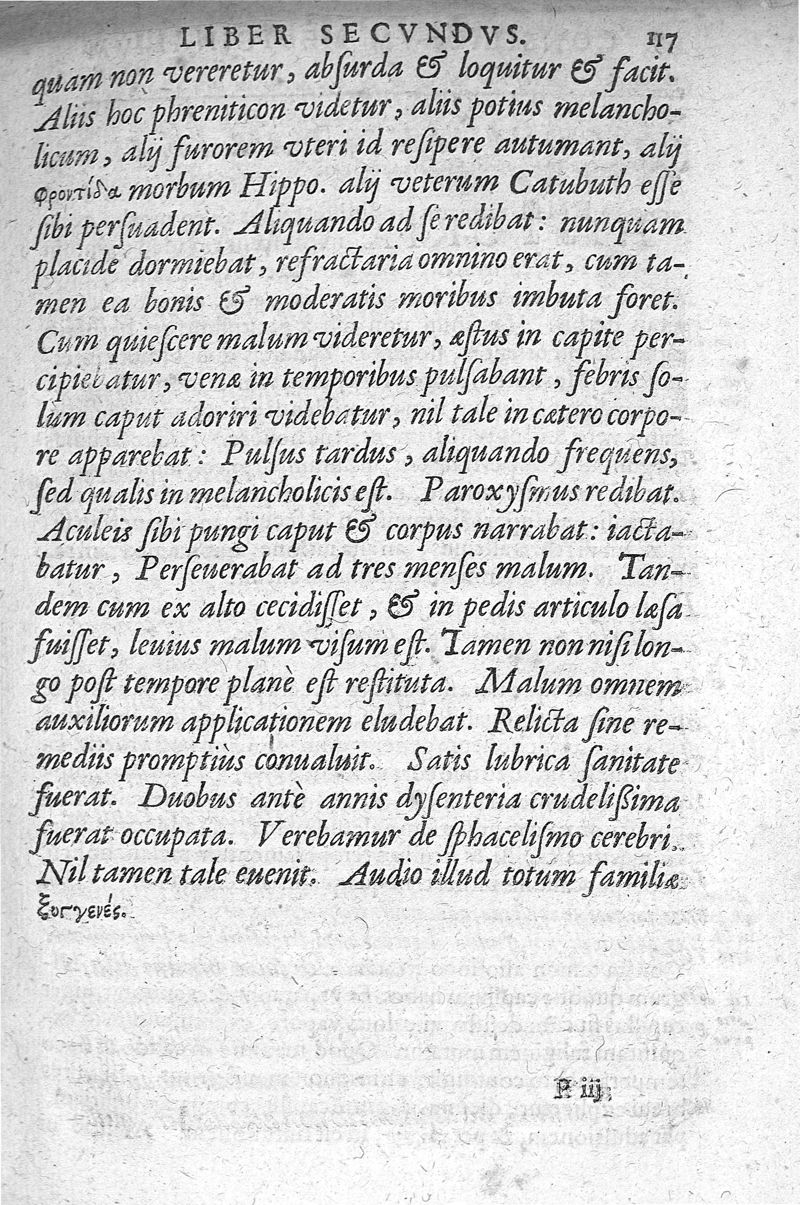 LIBER SECVNDVS. 117
quam non vereretur, abſurda & loquitur & facit.
Aliis hoc phreniticon videtur, aliis potius melancho-
licum, alij furorem vteri id reſipere autumant, alij
φροντίδα morbum Hippo. alij veterum Catubuth eſſe
ſibi perſuadent. Aliquando ad ſe redibat: nunquam
placide dormiebat, refractaria omnino erat, cum ta-
men ea bonis & moderatis moribus imbuta foret.
Cum quieſcere malum videretur, æſtus in capite per-
cipiebatur, venæ in temporibus pulſabant, febris ſo-
lum caput adoriri videbatur, nil tale in cætero corpo-
re apparebat: Pulſus tardus, aliquando frequens,
ſed qualis in melancholicis eſt. Paroxyſmus redibat.
Aculeis ſibi pungi caput & corpus narrabat: iacta-
batur, Perſeuerabat ad tres menſes malum. Tan-
dem cum ex alto cecidiſſet, & in pedis articulo læſa
fuiſſet, leuius malum viſum eſt. Tamen non niſi lon-
go poſt tempore planè eſt reſtituta. Malum omnem
auxiliorum applicationem eludebat. Relicta ſine re-
mediis promptiùs conualuit. Satis lubrica ſanitate
fuerat. Duobus antè annis dyſenteria crudelißima
fuerat occupata. Verebamur de ſphaceliſmo cerebri.
Nil tamen tale euenit. Audio illud totum familiæ
P iij